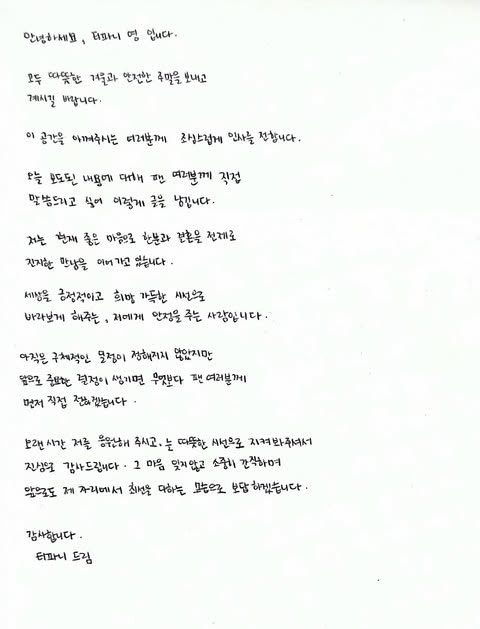 안녕하세요, 티파니 영 입니다.
모두 따뜻한 겨울과 안전한 주말을 보내고
계시길 바랍니다.
이 공간을 아껴주시는 여러분께 조심스럽게 인사를 전합니다.
오늘 보도된 내용에 대해 팬 여러분께 직접
말씀드리고 싶어 이렇게 글을 남깁니다.
저는 현재 좋은 마음으로 한분과 결혼을 전제로
진지한 만남을 이어가고 있습니다.
세상을 긍정적이고 희망 가득한 시선으로
바라보게 해주는, 저에게 안정을 주는 사람입니다.
아직은 구체적인 일정이 정해지지 않았지만
앞으로 중요한 결정이 생기면 무엇보다 팬여러분께
먼저 직접 전하겠습니다.
오랜시간 저를 응원해 주시고, 늘 따뜻한 시선으로 지켜봐주셔서
진심으로 감사드립니다. 그 마음 잊지않고 소중히 간직하며
앞으로도 제 자리에서 최선을 다하는 모습으로 보답하겠습니다.
감사합니다.
티파니 드림